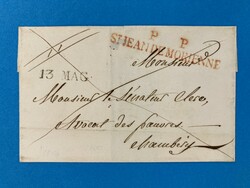 P P
ST JEAN DE MORIENNE
Monsieur
13 MAG
Monsieur
Avocat des pauvres
Chambéry